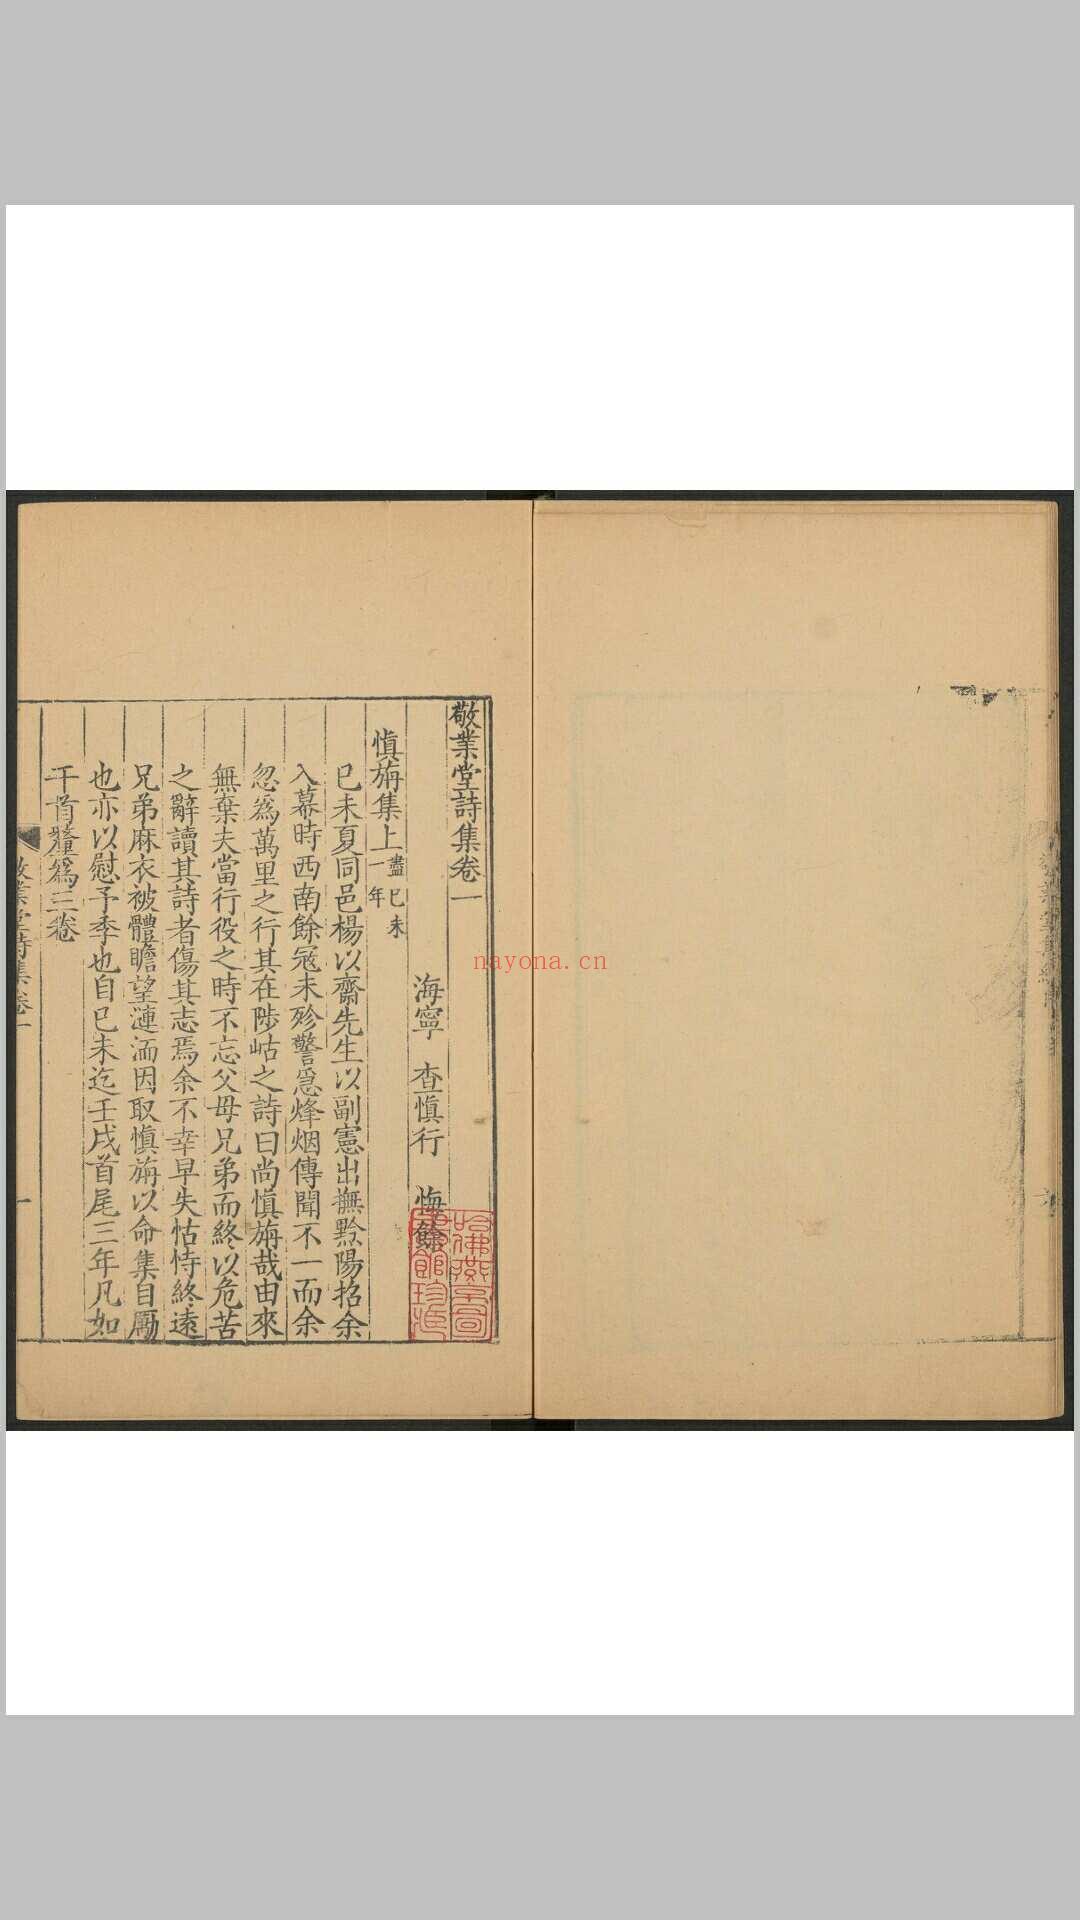 敬業堂詩集卷一
海寧 查慎行 悔餘
慎旃集上 盡己未一年
己未夏同邑楊以齋先生以副憲出撫黔陽招余
入幕時西南餘寇未殄警急烽烟傳聞不一而余
忽爲萬里之行其在陟岵之詩曰尚慎旃哉由來
無棄夫當行役之時不忘父母兄弟而終以危苦
之辭讀其詩者傷其志焉余不幸早失怙恃終遠
兄弟麻衣被體瞻望漣洏因取慎旃以命集自勵
也亦以慰予季也自己未迄壬戌首尾三年凡如
干首釐爲三卷
敬業堂詩集卷一
一
哈佛燕京圖書館珍藏
nayona.cn